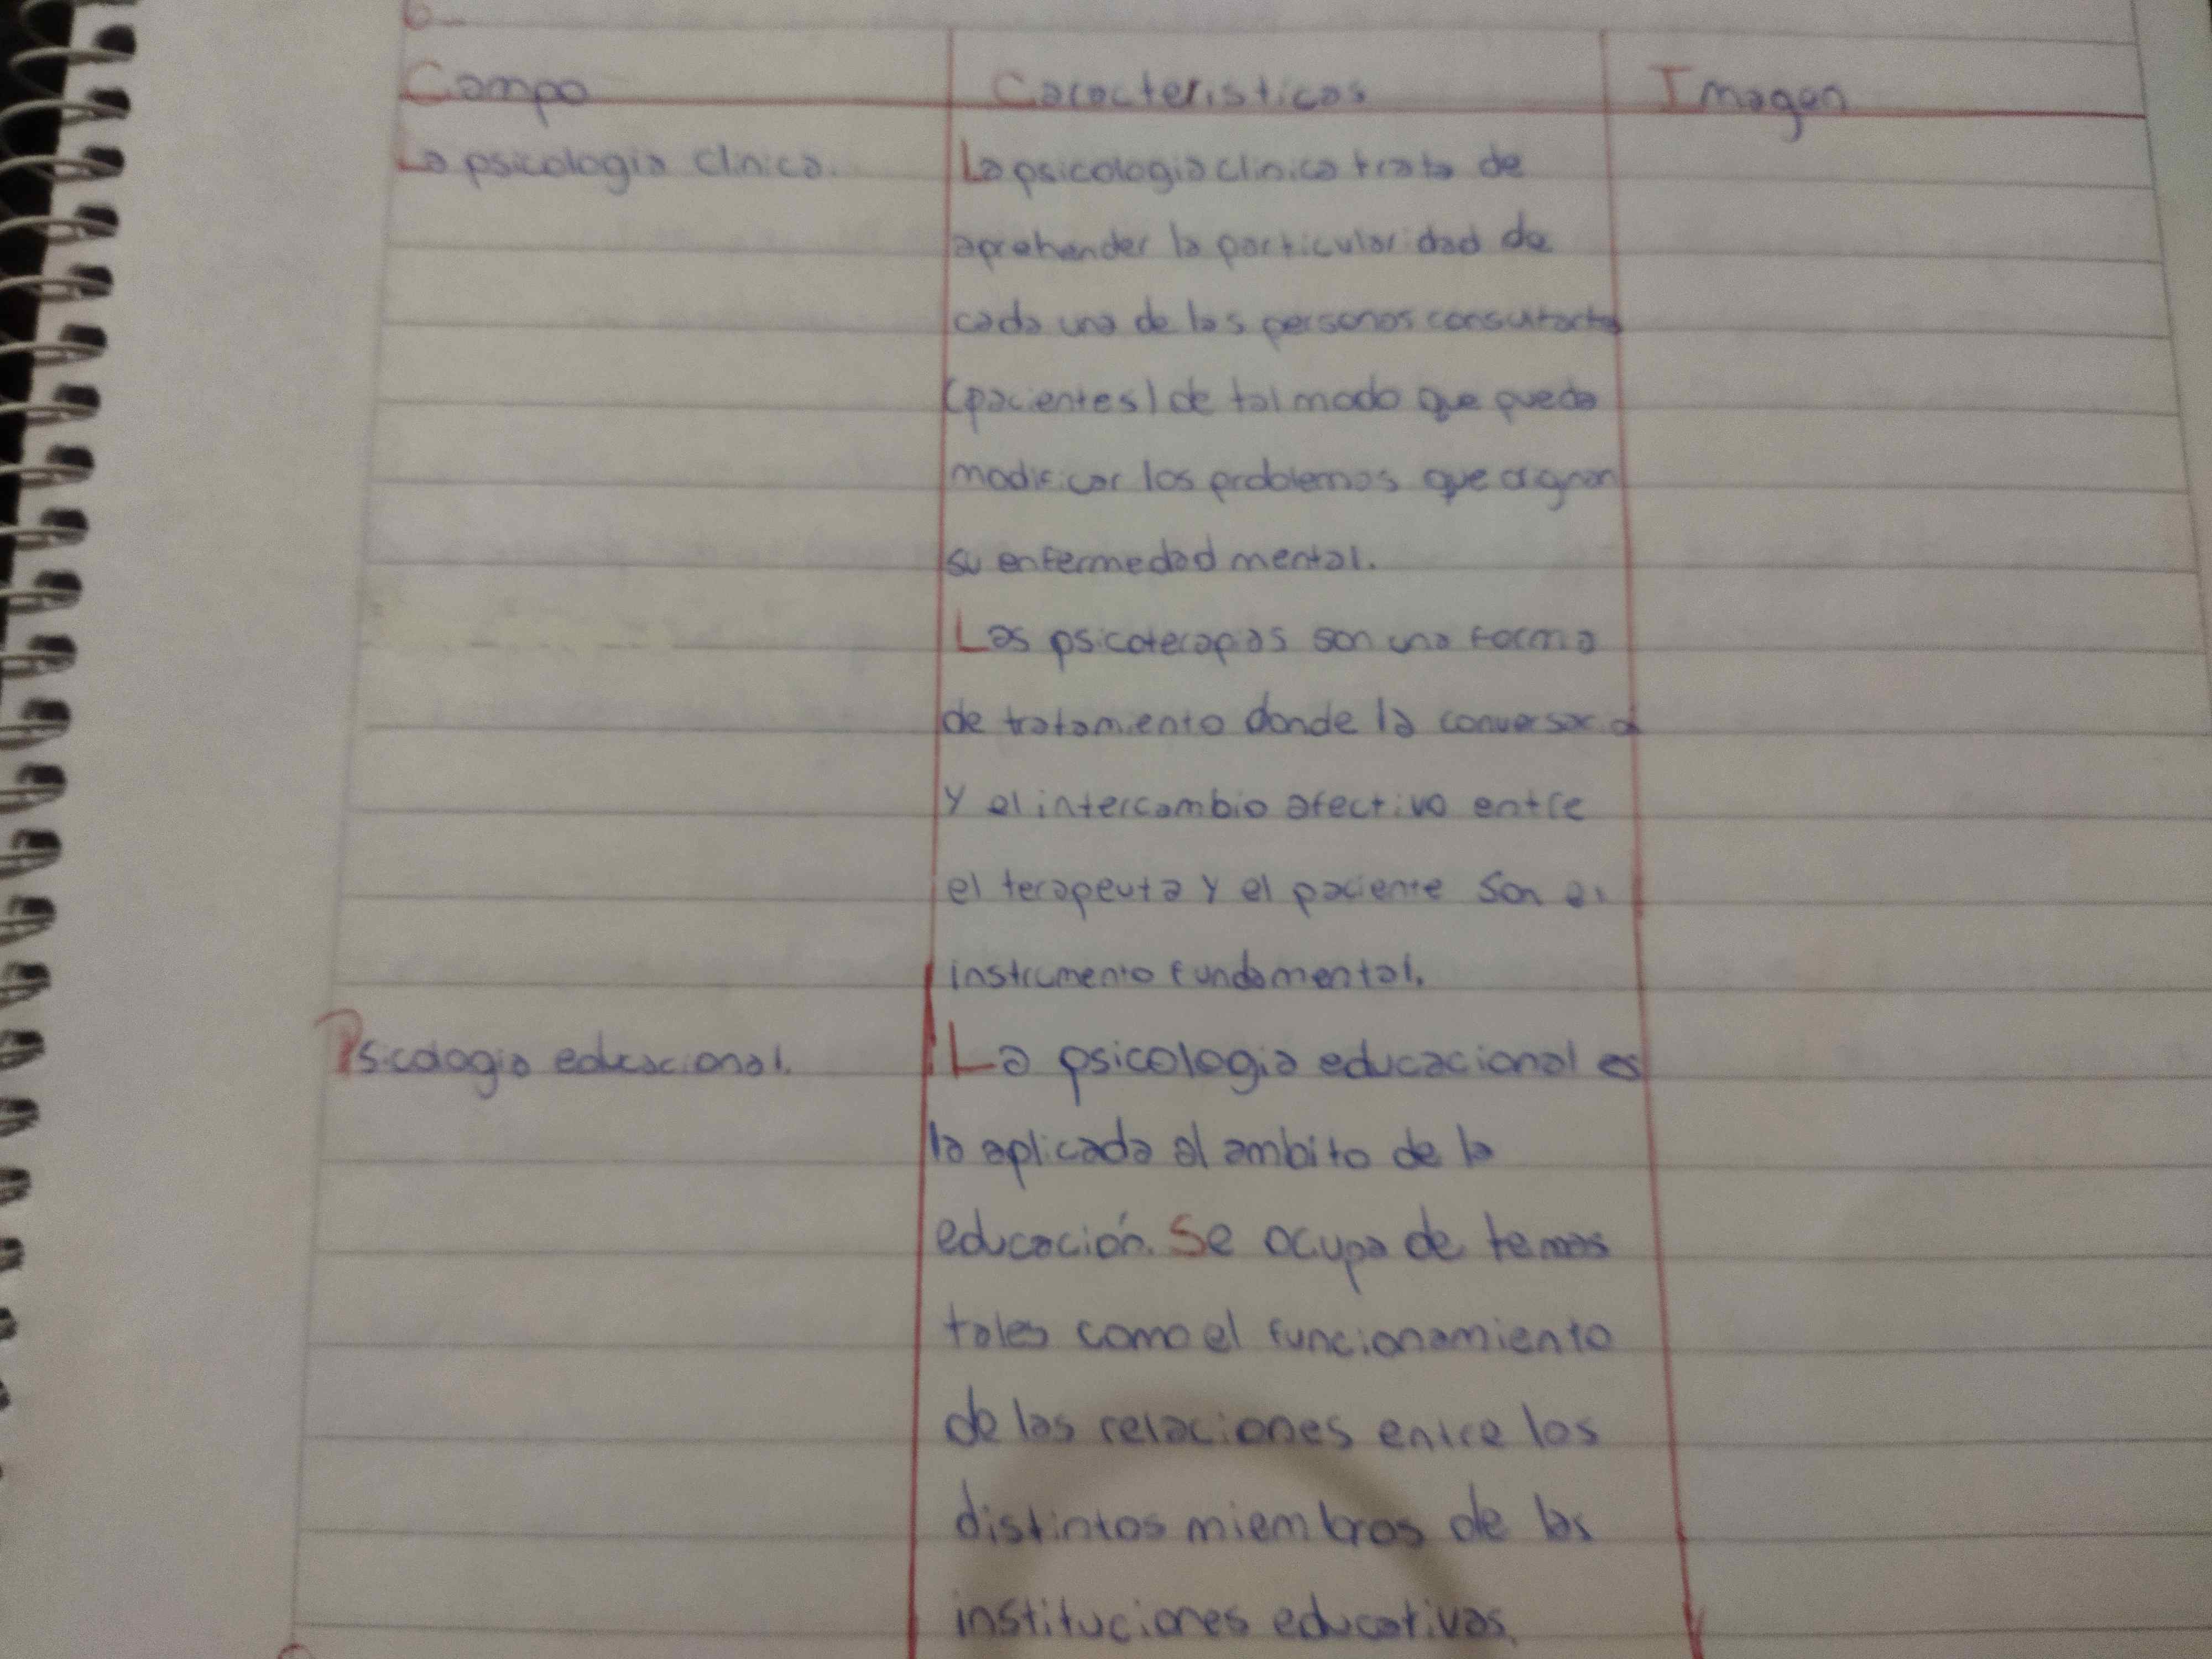 6
Campo Caracteristicas Imagen
La psicologia clinica. La psicologia clinica trata de
aprehender la particularidad de
cada una de las personas consultantes
(pacientes) de tal modo que pueda
modificar los problemas que orignan
su enfermedad mental.
Las psicoterapias son una forma
de tratamiento donde la
y el intercambio afectivo entre
el terapeuta y el paciente son el
instrumento fundamental.
Psicologia educacional. La psicologia educacional es
la aplicada al ambito de la
educación. Se ocupa de temas
tales como el funcionamiento
de las relaciones entre los
distintos miembros de las
instituciones educativas.